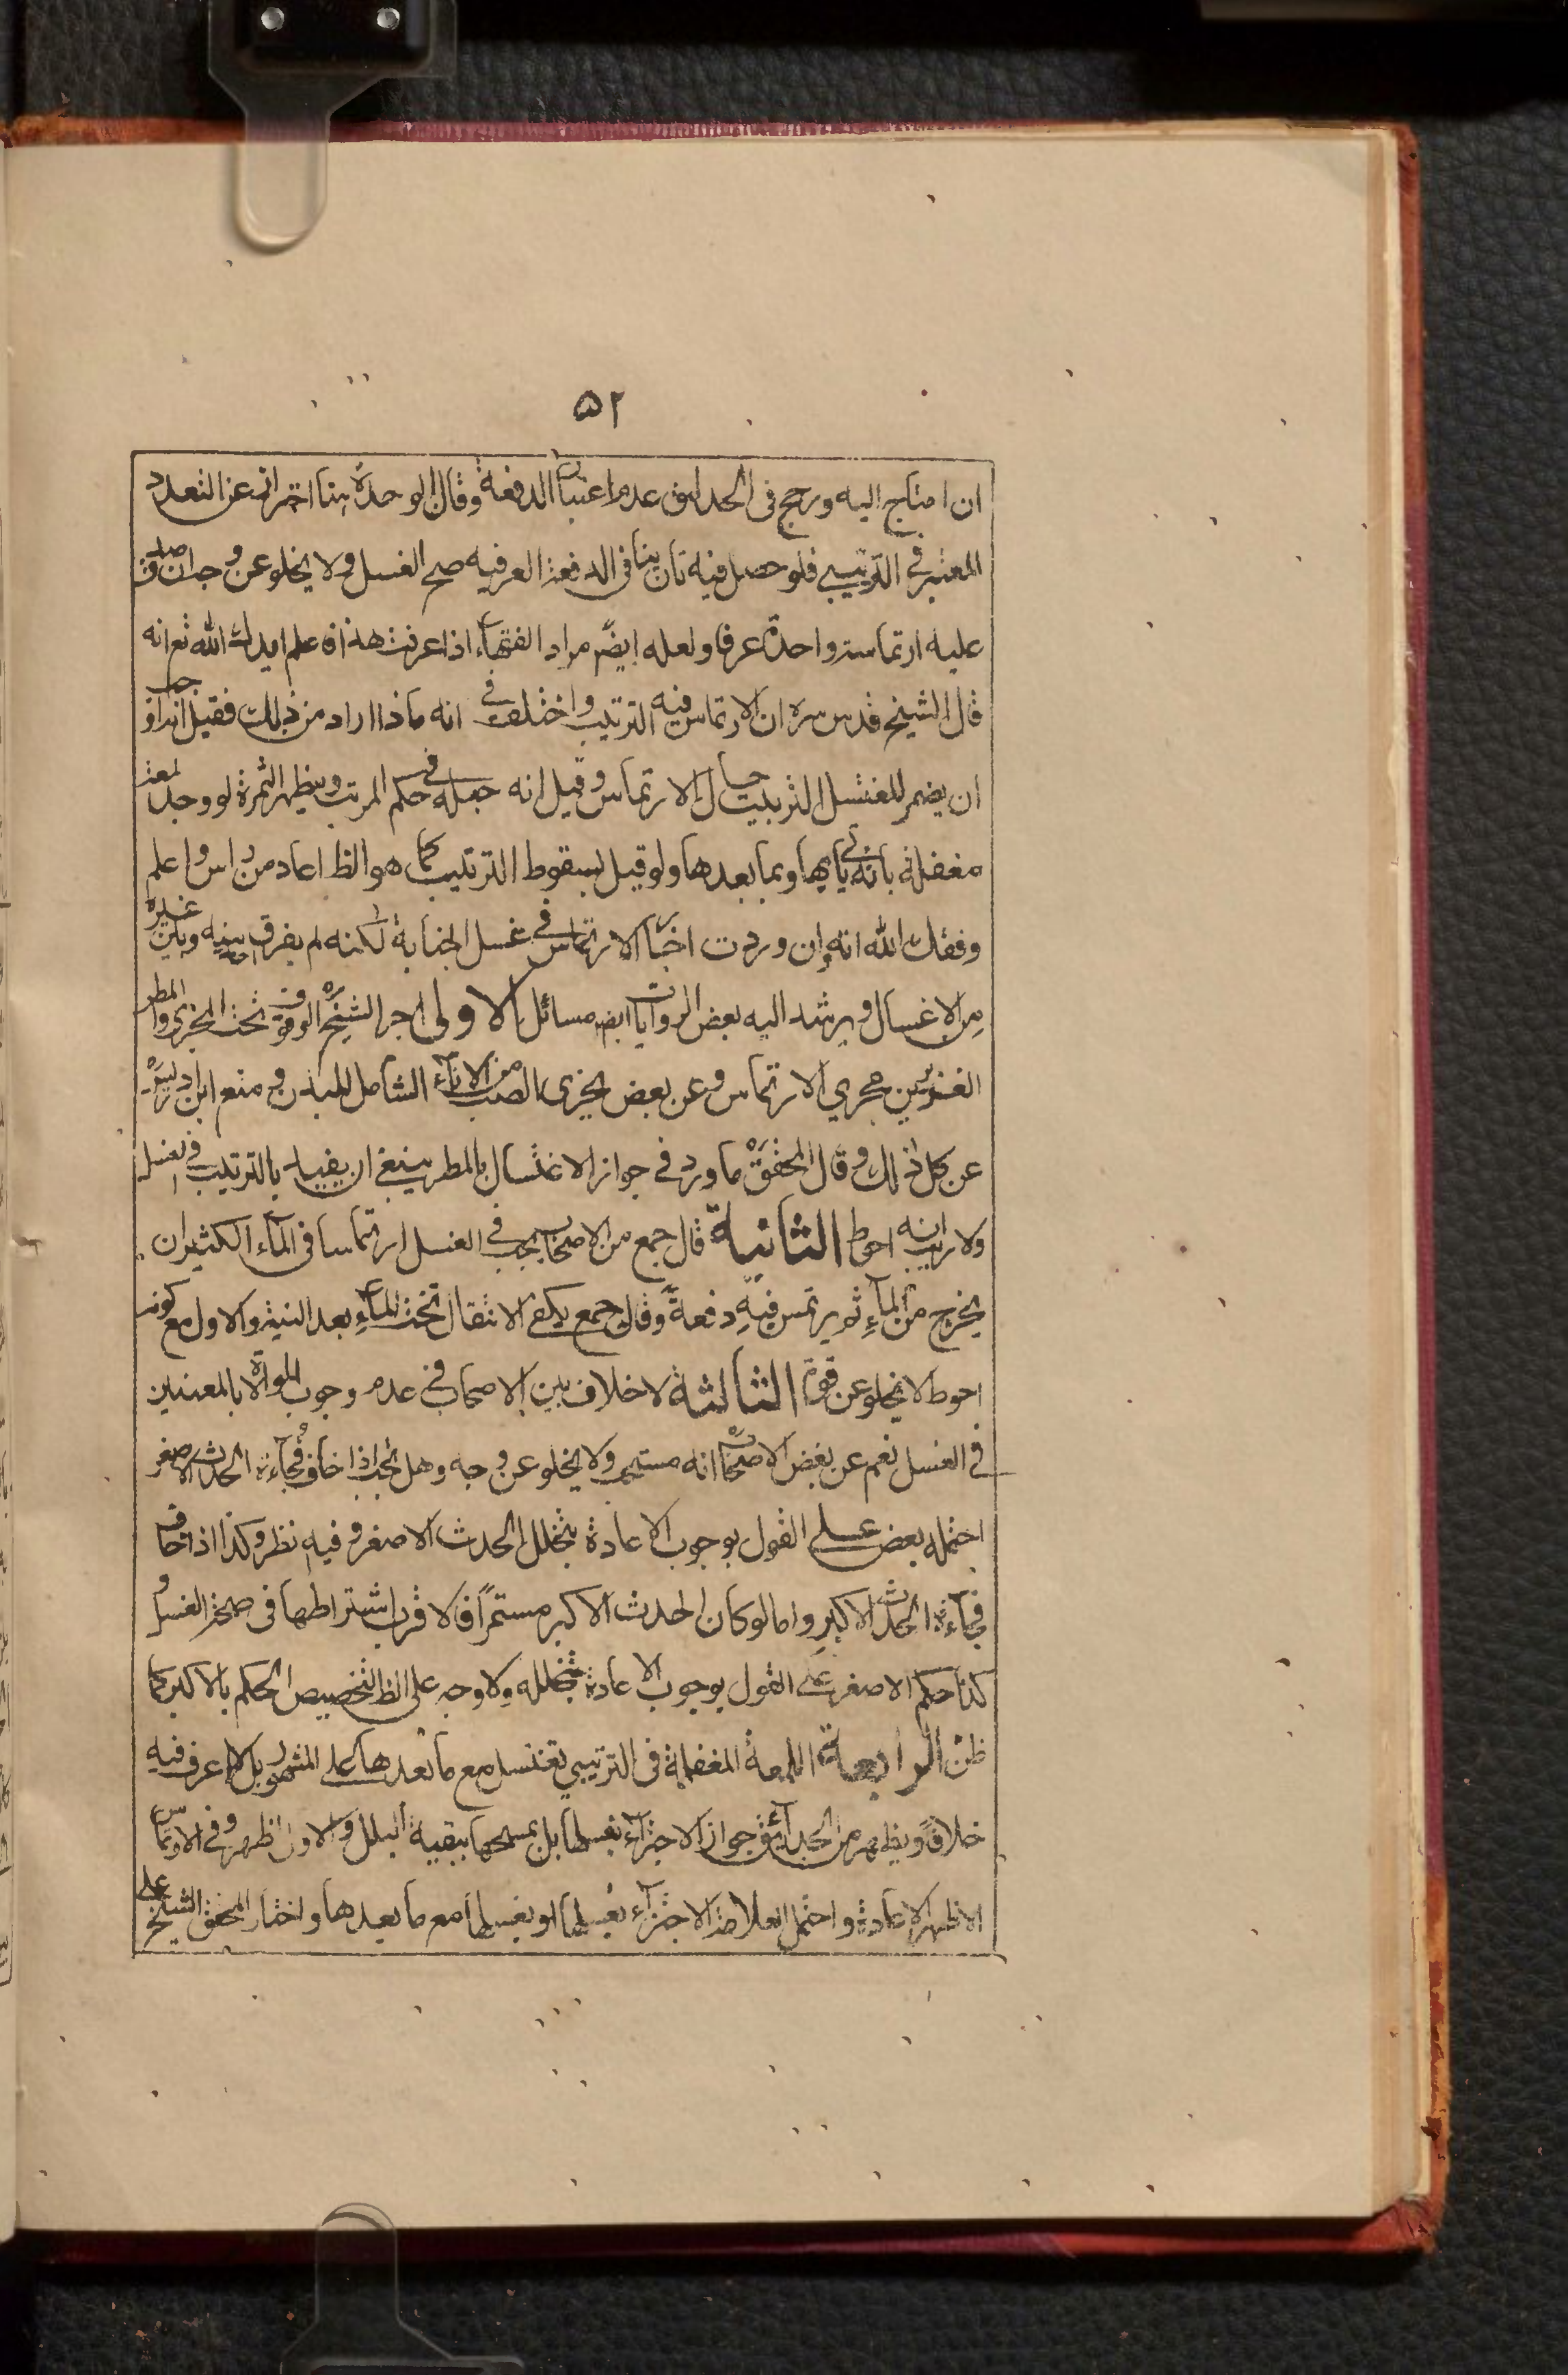 ۵۲
ان احتاج اليه ورجح فى الحدائق عدم اعتبار الدفعة وقال الوحدة هنا احتراز عن التعدد
المعتبر فى الترتيبي فلو حصل فيه تان ينا فى الدفعة العرفيه صح الغسل ولا يخلو عن وجه ان صدق
عليه ارتماسة واحدة عرفا ولعله ايضً مراد الفقهاء اذا عرفت هذا فاعلم ايدك الله تع انه
قال الشيخ قدس سره ان الارتماس فيه الترتيب واختلف فى انه ماذا اراد من ذلك فقيل انه اراد
ان يضمر المغتسل الترتيب حال الارتماس وقيل انه جعله فى حكم المرتب ويظهر الثمرة لو وجد لمعة
مغفلة بانه ياتى بها وبما بعدها ولو قيل بسقوط الترتيب كما هو الظ اعاد من راس واعلم
وفقك الله انه وان وردت اخبار الارتماس فى غسل الجنابة لكنه لم يفرق احد بينه وبين غيره
من الاغسال ويرشد اليه بعض الروايات ايضا مسائل الاولى اجر الشيخ ره الوقوف تحت المجرى والمطر
الغزيرين مجري الارتماس وعن بعض يجزى الصب من الاناء الشامل للبدن ومنع ابن ادريس ره
عن كل ذلك وقال المحقق ره ما ورد فى جواز الاغتسال بالمطر ينبغى ان يقيد بالترتيب فى الغسل
ولا ريب انه احوط الثانية قال جمع من الاصحاب يجب فى الغسل ارتماسا فى الماء الكثير ان
يخرج من الماءِ ثم يرتمس فيهِ دفعةً وقال جمع يكفى الانتقال تحت الماءِ بعد النية والاول مع كونه
احوط لا يخلو عن قوة الثالثة لا خلاف بين الاصحاب فى عدم وجوب الموالاة بالمعنيين
فى الغسل نعم عن بعض الاصحاب انه مستحب ولا يخلو عن وجه وهل يجب اذا خاف فجاءة الحدث الاصغر
احتمله بعض على القول بوجوب الاعادة بتخلل الحدث الاصغر وفيه نظر وكذا اذا خاف
فجاءة الحدث الاكبر واما لو كان الحدث الاكبر مستمرًا فالاقرب اشتراطها فى صحة الغسل و
كذا حكم الاصغر على القول بوجوب الاعادة بتخلله ولا وجه على الظ لتخصيص الحكم بالاكبر كما
ظن الرابعة اللمعة المغفلة فى الترتيبي تغتسل مع ما بعدها على المشهور بل لا اعرف فيه
خلافًا ويظهر من الحدائق جواز الاجتزاء بغسلها بل بمسحها ببقية البلل والاول اظهر وفى الارتماس
الاظهر الاعادة واحتمل العلامة الاجتزاء بغسلها او بغسلها مع ما بعدها واختار المحقق الشيخ على